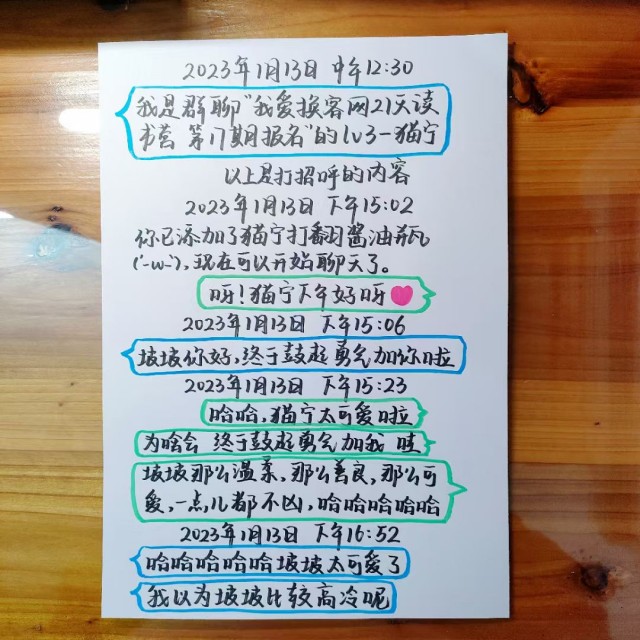 2023年1月13日 中午12:30
我是群聊"我爱换客网21天读
书营 第17期报名"的lv3-猫宁
以上是打招呼的内容
2023年1月13日 下午15:02
你已添加了猫宁打翻酱油瓶
('-ω-'),现在可以开始聊天了。
呀!猫宁下午好呀
2023年1月13日 下午15:06
坡坡你好,终于鼓起勇气加你啦
2023年1月13日 下午15:23
哈哈,猫宁太可爱啦
为啥会 终于鼓起勇气加我 哇
坡坡那么温柔,那么善良,那么可
爱,一点儿都不凶,哈哈哈哈哈
2023年1月13日 下午16:52
哈哈哈哈哈坡坡太可爱了
我以为坡坡比较高冷呢